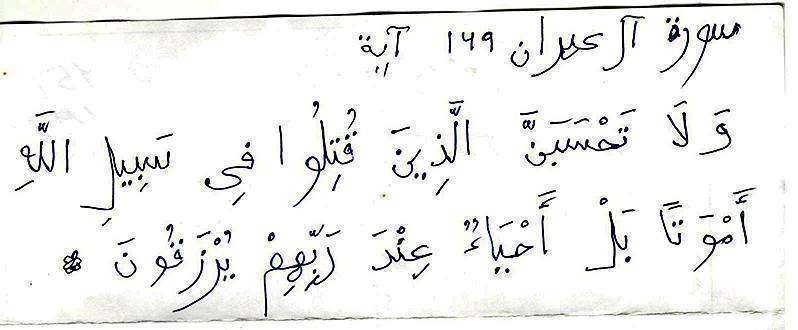 سورة آل عمران ١٦٩ آية
وَلَا تَحْسَبَنَّ الَّذِينَ قُتِلُوا فِى سَبِيلِ اللَّهِ
أَمْوَتًا بَلْ أَحْيَاءٌ عِنْدَ رَبِّهِمْ يُرْزَقُونَ *